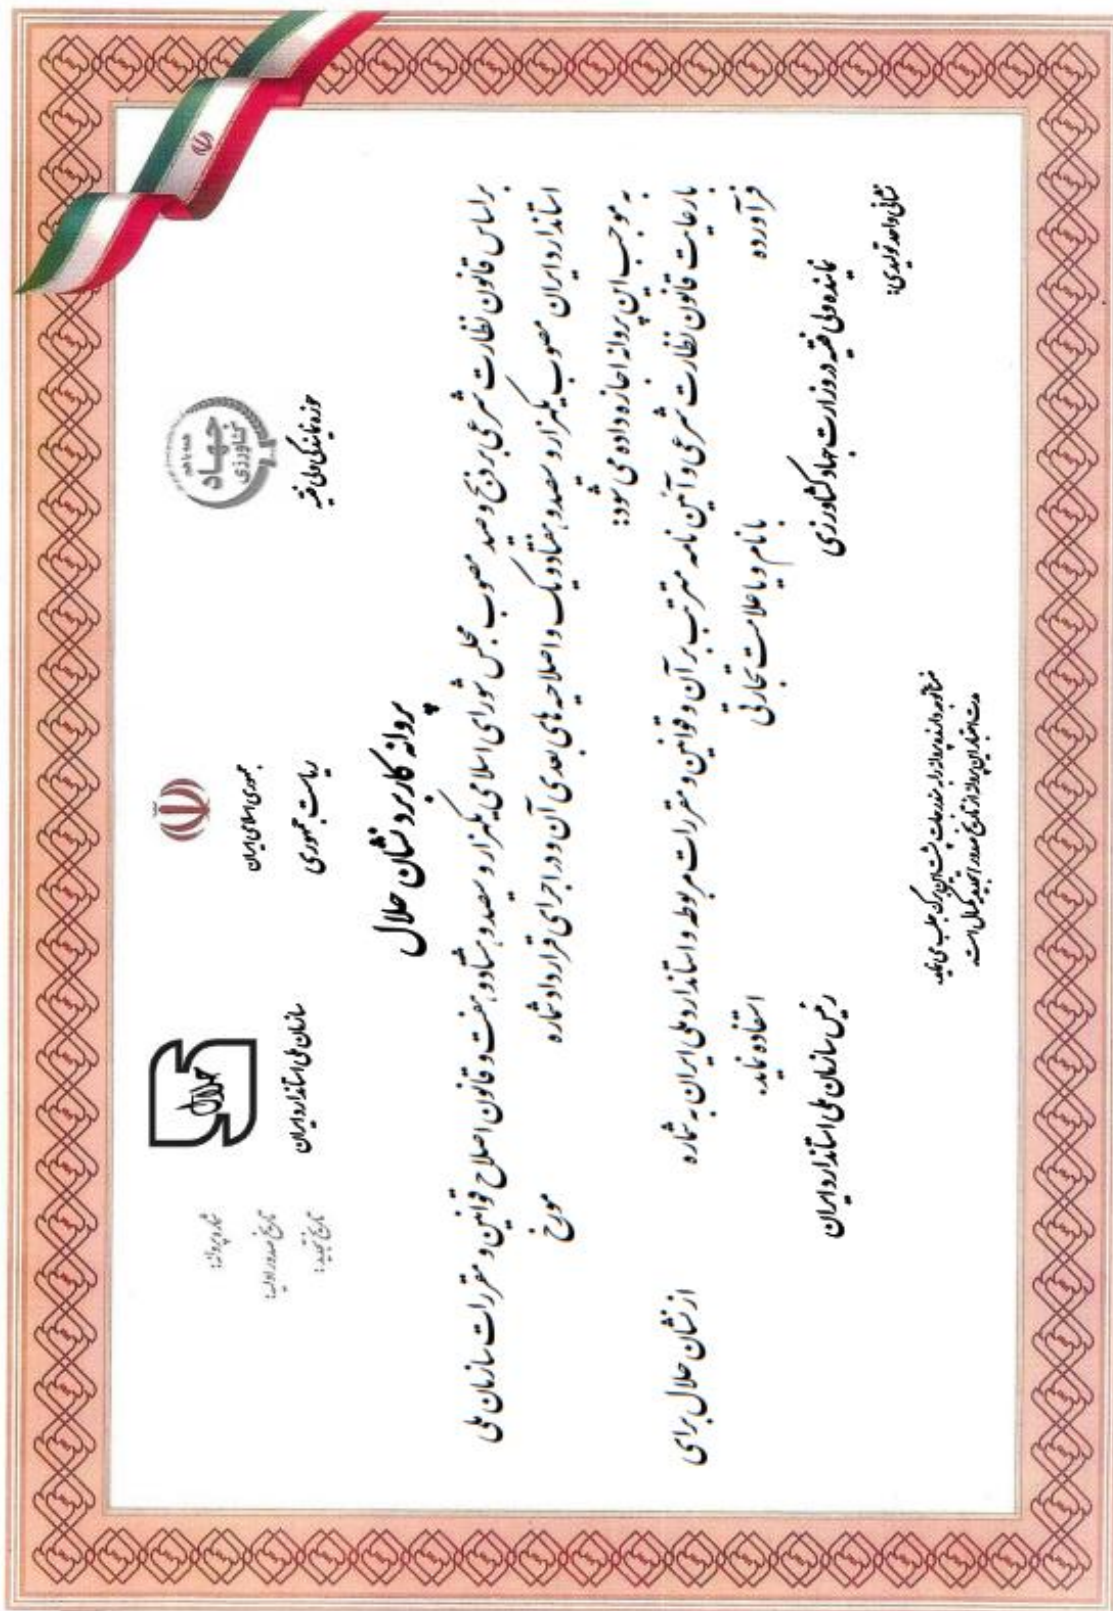 همه با هم
جهاد
کشاورزی
حوزه نمایندگی ولی فقیه
جمهوری اسلامی ایران
ریاست جمهوری
حلال
سازمان ملی استاندارد ایران
شماره پروانه:
تاریخ صدور اولیه:
تاریخ تمدید:
پروانه کاربرد نشان حلال
براساس قانون نظارت شرعی بر ذبح و صید مصوب مجلس شورای اسلامی یکهزار و سیصد و هشتاد و هفت و قانون اصلاح قوانین و مقررات سازمان ملی
استاندارد ایران مصوب یکهزار و سیصد و هفتاد و یک و اصلاحیه های بعدی آن و در اجرای قرارداد شماره مورخ
به موجب این پروانه اجازه داده می شود:
با رعایت قانون نظارت شرعی و آئین نامه مترتب بر آن و قوانین و مقررات مربوطه و استاندارد ملی ایران به شماره از نشان حلال برای
فرآورده با نام و یا علامت تجارتی استفاده نماید.
نماینده ولی فقیه در وزارت جهاد کشاورزی رئیس سازمان ملی استاندارد ایران
نشانی واحد تولیدی:
توجه دارنده پروانه را به مندرجات پشت این برگ جلب می نماید.
مدت اعتبار این پروانه از تاریخ صدور / تمدید یکسال است.